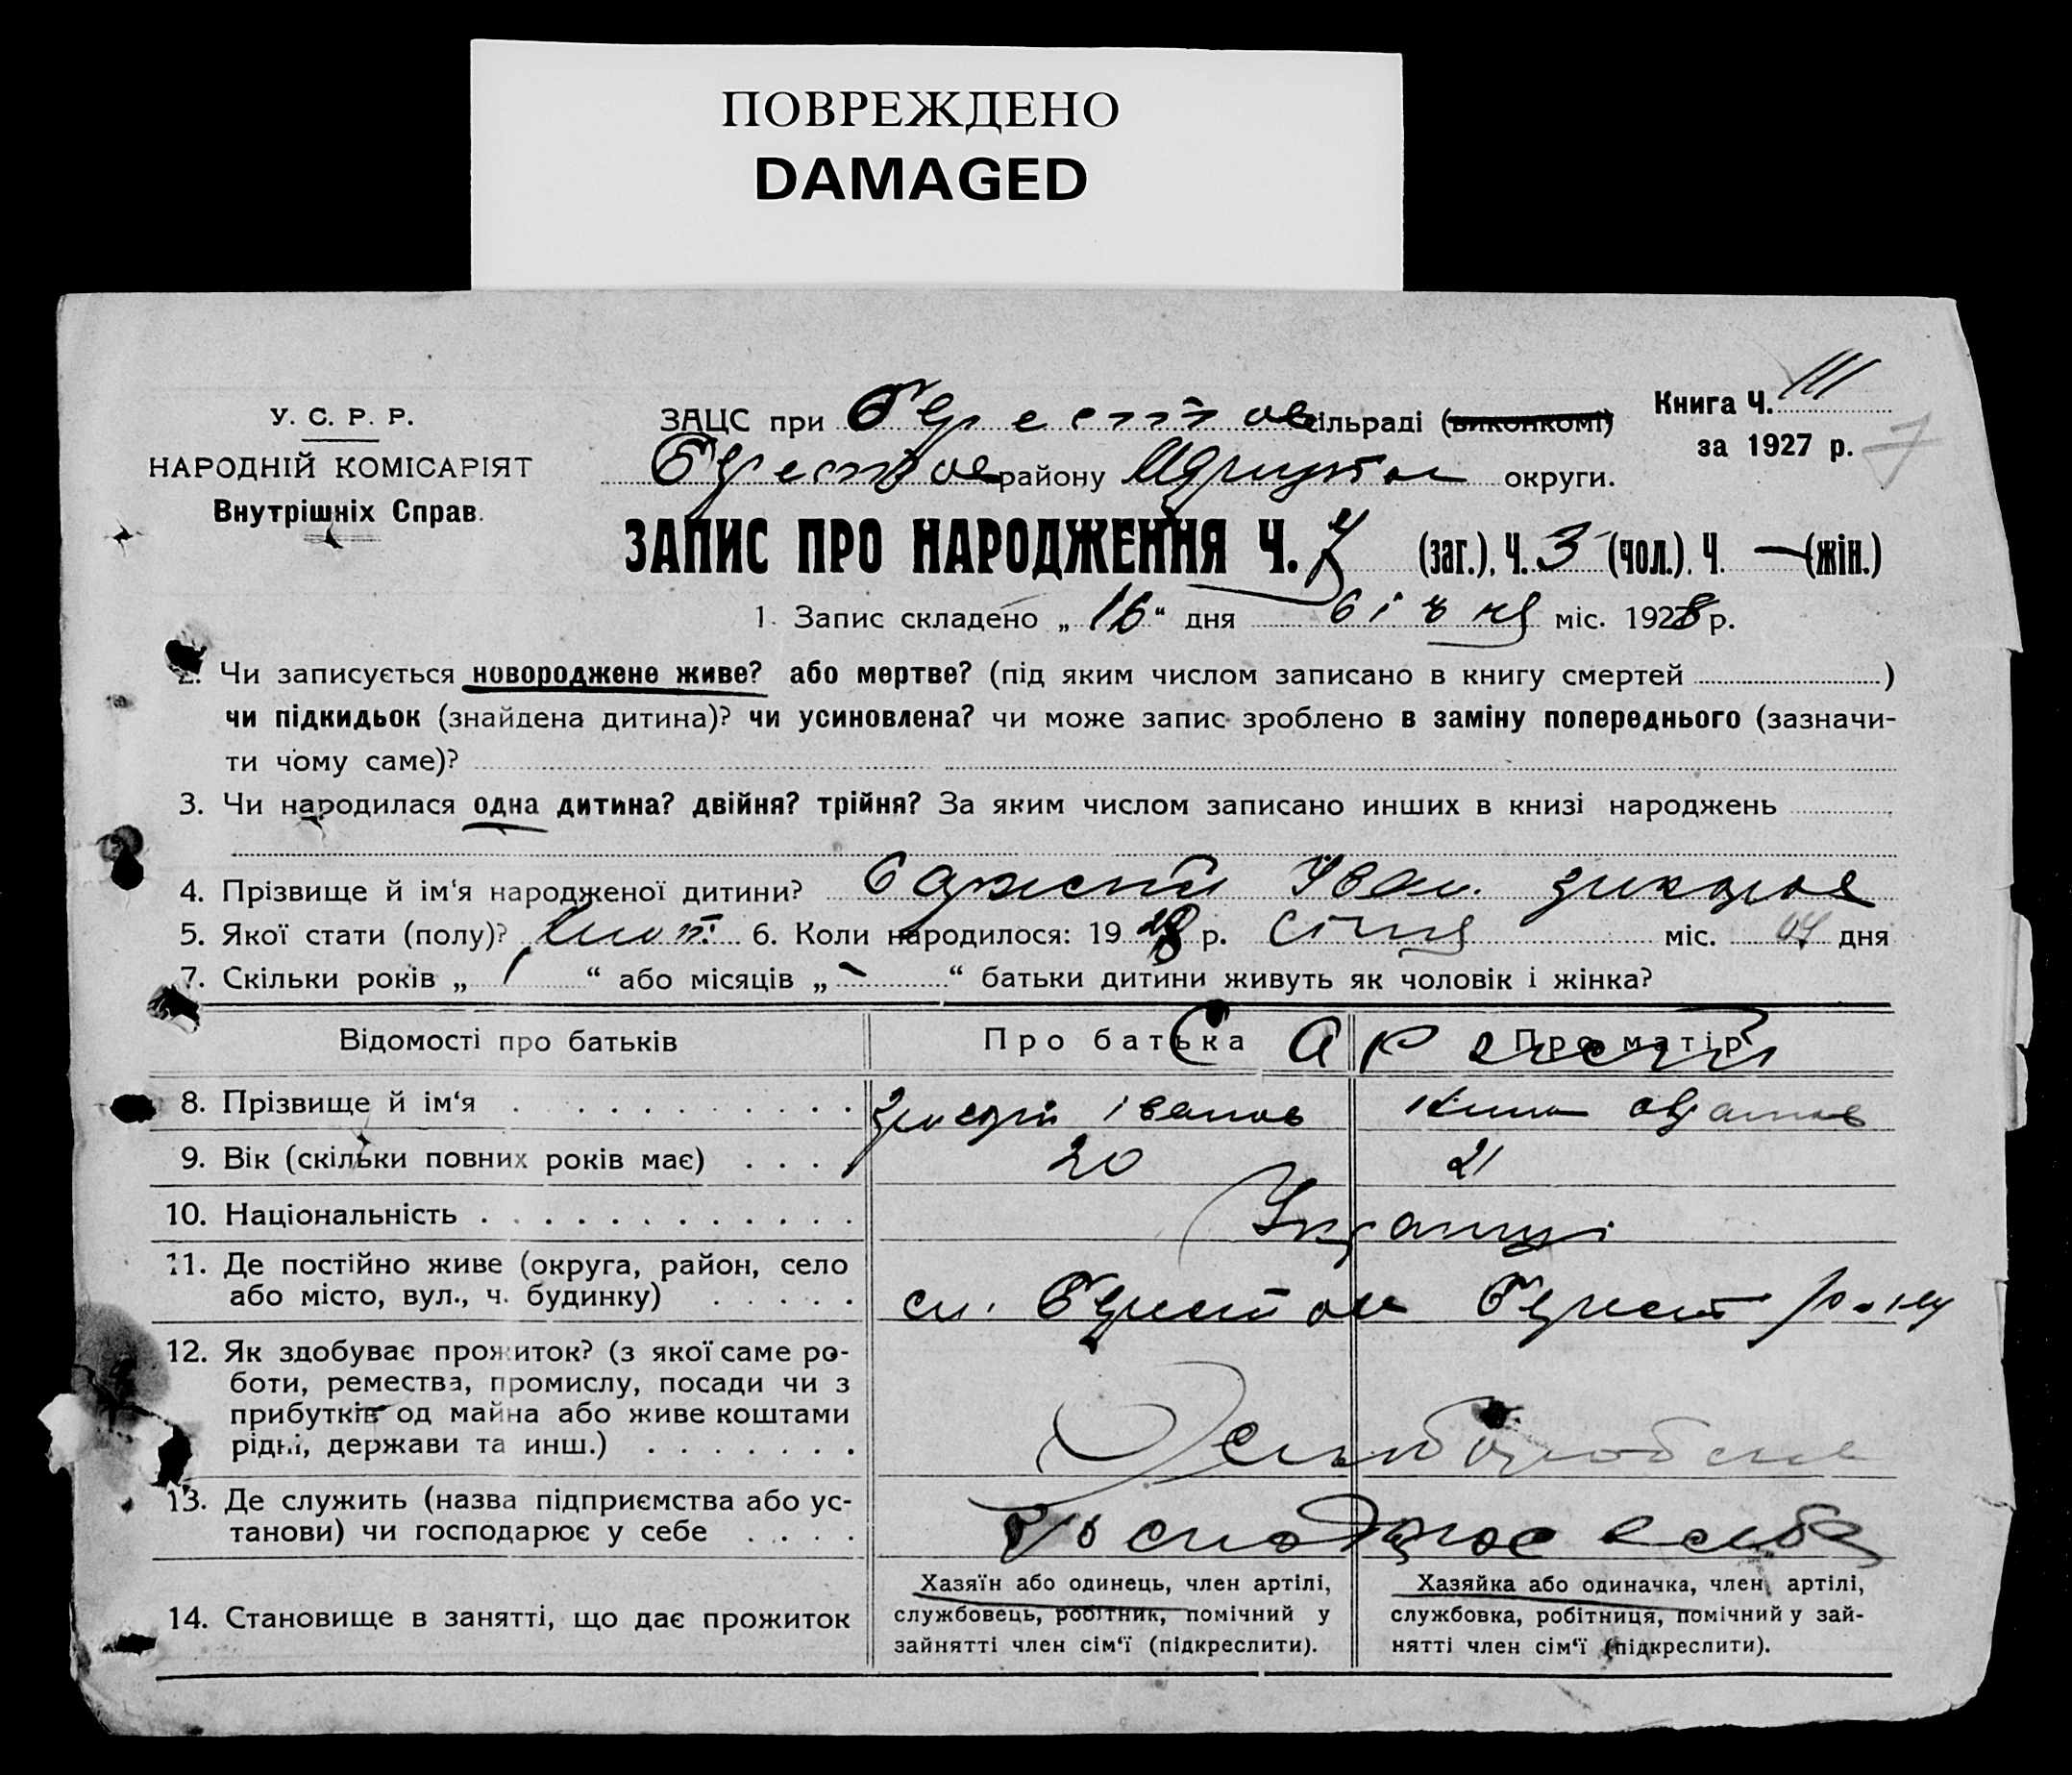 ПОВРЕЖДЕНО
DAMAGED
У. С. Р. Р.
НАРОДНІЙ КОМІСАРІЯТ
Внутрішніх Справ.
ЗАЦС при Берестов сільраді (виконкомі)
Берестов району округи.
Книга Ч. III
за 1927 р.
7
ЗАПИС ПРО НАРОДЖЕННЯ Ч. 7 (заг.). Ч. 3 (чол.). Ч. — (жін.)
1. Запис складено „ 16 “ дня січня міс. 1928 р.
2. Чи записується новороджене живе? або мертве? (під яким числом записано в книгу смертей )
чи підкидьок (знайдена дитина)? чи усиновлена? чи може запис зроблено в заміну попереднього (зазначи-
ти чому саме)?
3. Чи народилася одна дитина? двійня? трійня? За яким числом записано инших в книзі народжень
4. Прізвище й ім‘я народженої дитини? Іван
5. Якої стати (полу)? 6. Коли народилося: 1928 р. Січня міс. 04 дня
7. Скільки років „ 1 “ або місяців „ - “ батьки дитини живуть як чоловік і жінка?
Відомості про батьків Про батька Про матір
8. Прізвище й ім‘я іванов
9. Вік (скільки повних років має) 20 21
10. Національність Українці
11. Де постійно живе (округа, район, село
або місто, вул., ч. будинку) с. Берестов Берест р-ну
12. Як здобуває прожиток? (з якої саме ро-
боти, ремества, промислу, посади чи з
прибутків од майна або живе коштами
рідні, держави та инш.)
13. Де служить (назва підприємства або ус-
танови) чи господарює у себе Господарює в себе
14. Становище в занятті, що дає прожиток
Хазяїн або одинець, член артілі,
службовець, робітник, помічний у
зайнятті член сім‘ї (підкреслити).
Хазяйка або одиначка, член артілі,
службовка, робітниця, помічний у зай-
нятті член сім‘ї (підкреслити).